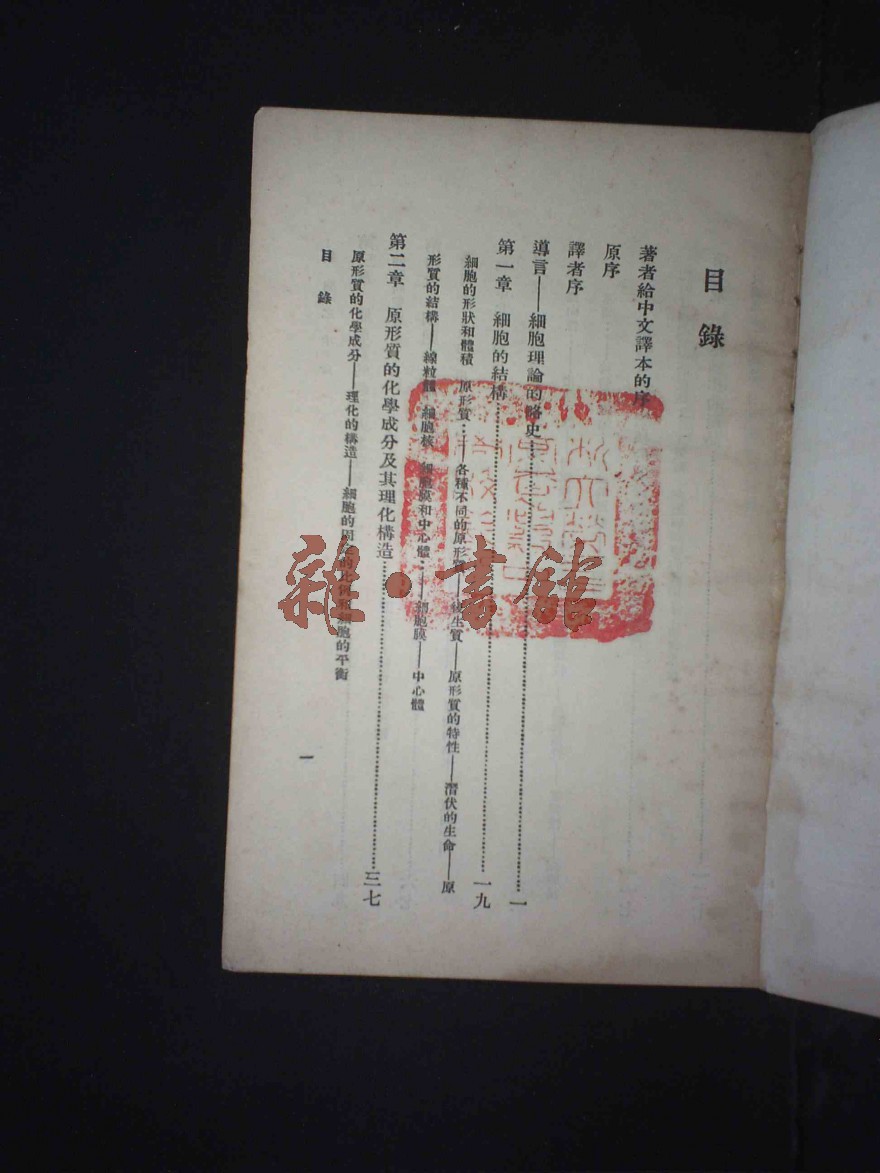 目錄
著者給中文譯本的序
原序
譯者序
導言——細胞理論的略史……一
第一章 細胞的結構……一九
細胞的形狀和體積 原形質……各種不同的原形質——後生質——原形質的特性——潛伏的生命——原
形質的結構——線粒體 細胞核 細胞膜和中心體……細胞膜——中心體
第二章 原形質的化學成分及其理化構造……三七
原形質的化學成分——理化的構造——細胞的 的比例和細胞的平衡
目 錄
一
雜·書館